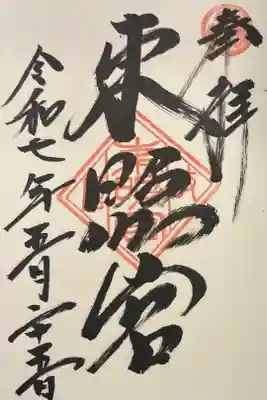 奉拝
東照宮
令和七年五月二十五日